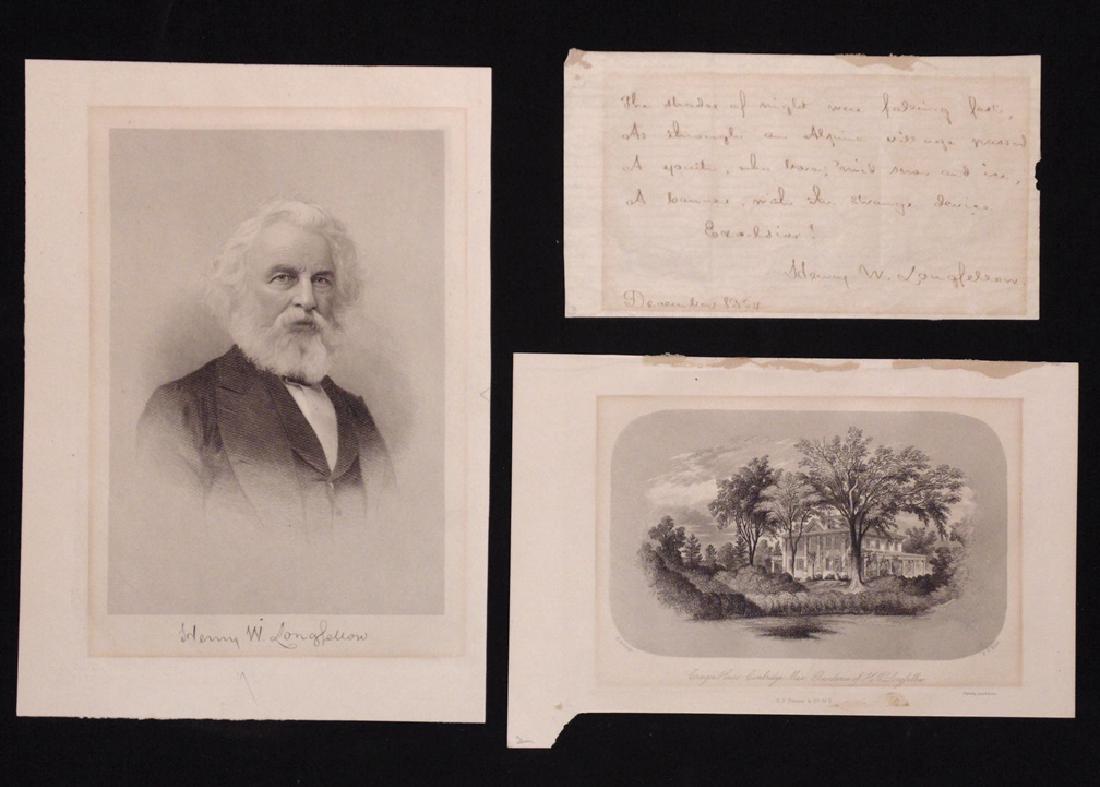 Henry W. Longfellow
The shades of night were falling fast,
As through an Alpine village passed
A youth, who bore, 'mid snow and ice,
A banner, with the strange device
Excelsior!
Henry W. Longfellow.
December
Craigie House Cambridge Mass. Residence of H. W. Longfellow